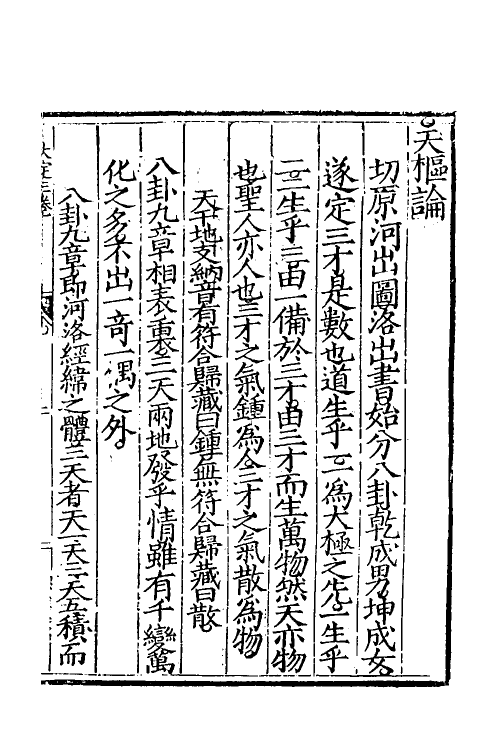 天樞論
切原河出圖洛出書始分八卦乾成男坤成女
遂定三才是數也道生乎一一爲太極之先一生乎
二二生乎三由一備於三才由三才而生萬物然天亦物
也聖人亦人也三才之氣鍾爲人三才之氣散爲物
天干地支納音有符合歸藏曰鍾無符合歸藏曰散
八卦九章相表裏三天兩地發乎情雖有千變萬
化之多不出一奇一偶之外
八卦九章即河洛經緯之體三天者天一天三天五積而